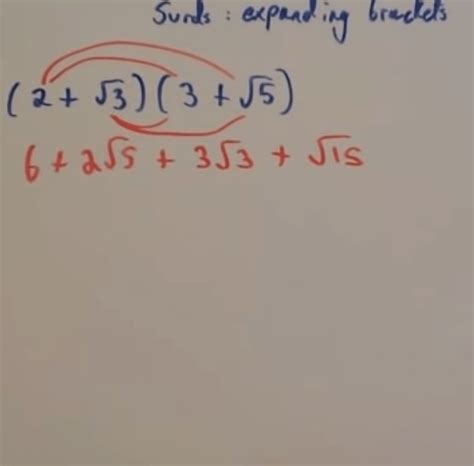 Surds : expanding brackets
(2 + √3)(3 + √5)
6 + 2√5 + 3√3 + √15